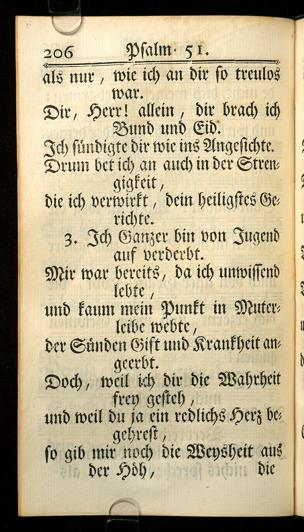 206 Psalm 51.
als nur, wie ich an dir so treulos
war.
Dir, Herr! allein, dir brach ich
Bund und Eid.
Ich sündigte dir wie ins Angesichte.
Drum bet ich an auch in der Stren-
gigkeit,
die ich verwirkt, dein heiligstes Ge-
richte.
3. Ich Ganzer bin von Jugend
auf verderbt.
Mir war bereits, da ich unwissend
lebte,
und kaum mein Punkt in Muter-
leibe webte,
der Sünden Gift und Krankheit an-
geerbt.
Doch, weil ich dir die Wahrheit
frey gesteh,
und weil du ja ein redlichs Herz be-
gehrest,
so gib mir noch die Weysheit aus
der Höh, die